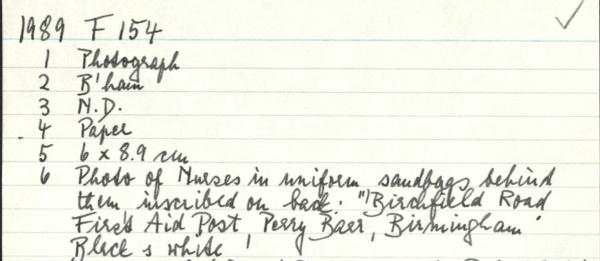 1989 F 154
1 Photograph
2 B'ham
3 N.D.
4 Paper
5 6 x 8.9 cm
6 Photo of Nurses in uniform sandbags behind
them inscribed on back. "Birchfield Road
First Aid Post, Perry Barr, Birmingham"
Black & white